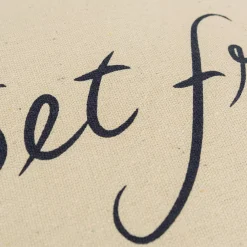 et fr